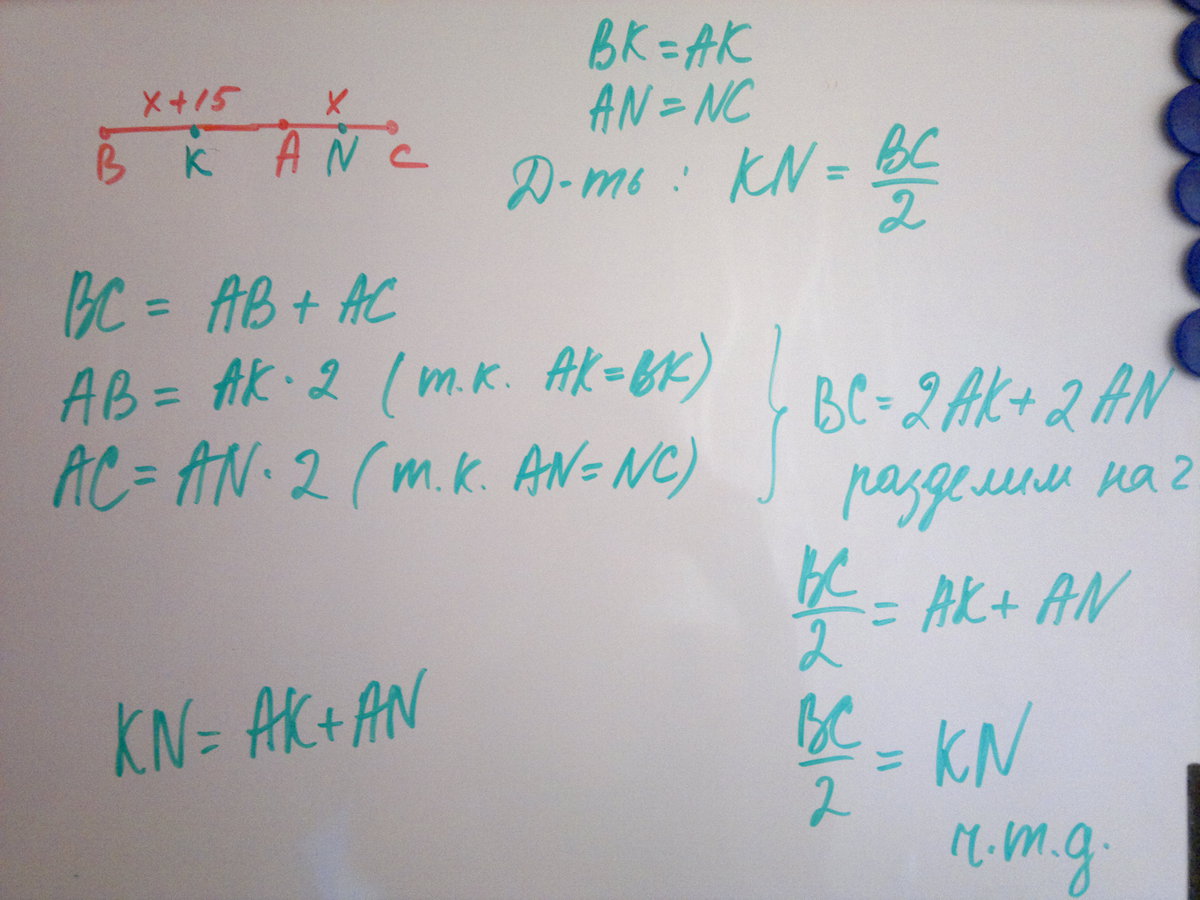 x+15 x
B K A N C
BK = AK
AN = NC
Д-ть : KN = BC/2
BC = AB + AC
AB = AK · 2 (т.к. AK = BK)
AC = AN · 2 (т.к. AN = NC)
} BC = 2AK + 2AN
разделим на 2
BC/2 = AK + AN
KN = AK + AN
BC/2 = KN
ч.т.д.